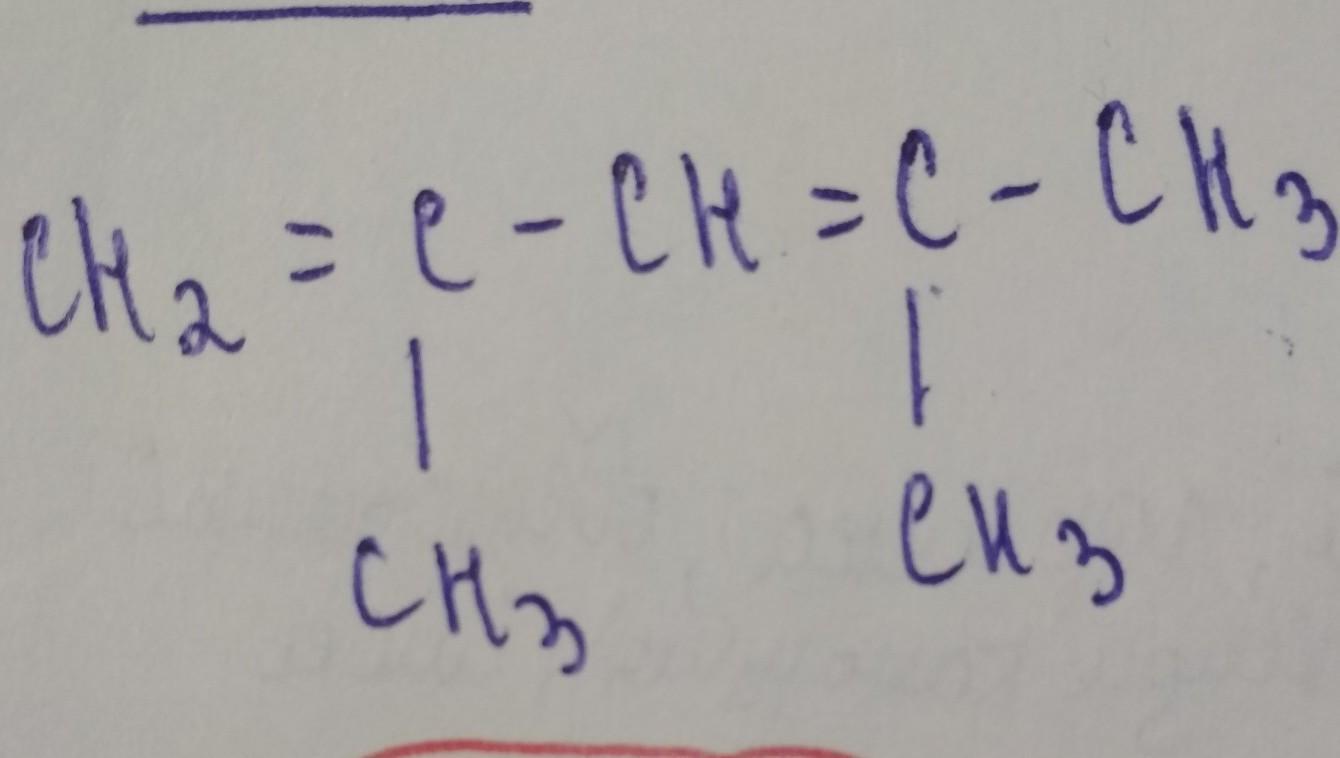 CH₂ = C - CH = C - CH₃
| |
CH₃ CH₃